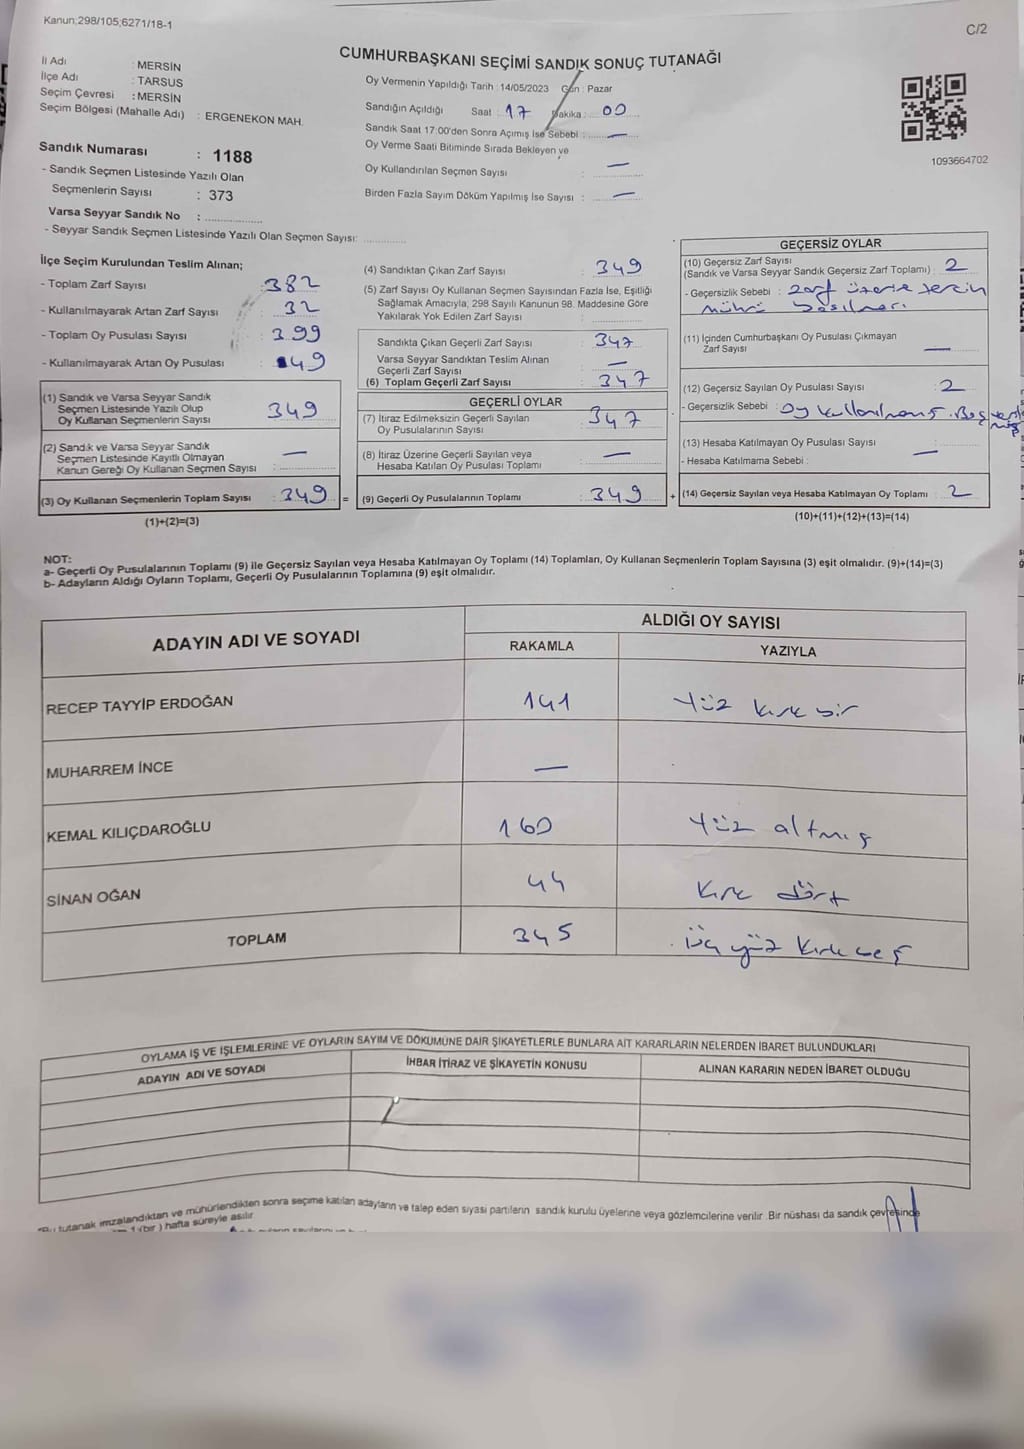 Kanun;298/105;6271/18-1
C/2
CUMHURBAŞKANI SEÇİMİ SANDIK SONUÇ TUTANAĞI
İl Adı : MERSİN
İlçe Adı : TARSUS
Seçim Çevresi : MERSİN
Seçim Bölgesi (Mahalle Adı) : ERGENEKON MAH.
Sandık Numarası : 1188
- Sandık Seçmen Listesinde Yazılı Olan
Seçmenlerin Sayısı : 373
Varsa Seyyar Sandık No :
- Seyyar Sandık Seçmen Listesinde Yazılı Olan Seçmen Sayısı:
Oy Vermenin Yapıldığı Tarih : 14/05/2023 Gün : Pazar
Sandığın Açıldığı Saat : 17 Dakika : 00
Sandık Saat 17:00'den Sonra Açımış İse Sebebi : —
Oy Verme Saati Bitiminde Sırada Bekleyen ve
Oy Kullandırılan Seçmen Sayısı : —
Birden Fazla Sayım Döküm Yapılmış İse Sayısı : —
1093664702
İlçe Seçim Kurulundan Teslim Alınan;
- Toplam Zarf Sayısı : 382
- Kullanılmayarak Artan Zarf Sayısı : 32
- Toplam Oy Pusulası Sayısı : 399
- Kullanılmayarak Artan Oy Pusulası : 49
(1) Sandık ve Varsa Seyyar Sandık
Seçmen Listesinde Yazılı Olup
Oy Kullanan Seçmenlerin Sayısı : 349
(2) Sandık ve Varsa Seyyar Sandık
Seçmen Listesinde Kayıtlı Olmayan
Kanun Gereği Oy Kullanan Seçmen Sayısı : —
(3) Oy Kullanan Seçmenlerin Toplam Sayısı : 349 =
(1)+(2)=(3)
(4) Sandıktan Çıkan Zarf Sayısı : 349
(5) Zarf Sayısı Oy Kullanan Seçmen Sayısından Fazla İse, Eşitliği
Sağlamak Amacıyla; 298 Sayılı Kanunun 98. Maddesine Göre
Yakılarak Yok Edilen Zarf Sayısı :
Sandıkta Çıkan Geçerli Zarf Sayısı : 347
Varsa Seyyar Sandıktan Teslim Alınan
Geçerli Zarf Sayısı : —
(6) Toplam Geçerli Zarf Sayısı : 347
GEÇERLİ OYLAR
(7) İtiraz Edilmeksizin Geçerli Sayılan
Oy Pusulalarının Sayısı : 347
(8) İtiraz Üzerine Geçerli Sayılan veya
Hesaba Katılan Oy Pusulası Toplamı : —
(9) Geçerli Oy Pusulalarının Toplamı : 349 +
GEÇERSİZ OYLAR
(10) Geçersiz Zarf Sayısı
(Sandık ve Varsa Seyyar Sandık Geçersiz Zarf Toplamı) : 2
- Geçersizlik Sebebi : zarf üzerine tercih
mührü basılması
(11) İçinden Cumhurbaşkanı Oy Pusulası Çıkmayan
Zarf Sayısı : —
(12) Geçersiz Sayılan Oy Pusulası Sayısı : 2
- Geçersizlik Sebebi : Oy kullanılmamış. Boş
(13) Hesaba Katılmayan Oy Pusulası Sayısı : —
- Hesaba Katılmama Sebebi :
(14) Geçersiz Sayılan veya Hesaba Katılmayan Oy Toplamı : 2
(10)+(11)+(12)+(13)=(14)
NOT:
a- Geçerli Oy Pusulalarının Toplamı (9) ile Geçersiz Sayılan veya Hesaba Katılmayan Oy Toplamı (14) Toplamları, Oy Kullanan Seçmenlerin Toplam Sayısına (3) eşit olmalıdır. (9)+(14)=(3)
b- Adayların Aldığı Oyların Toplamı, Geçerli Oy Pusulalarının Toplamına (9) eşit olmalıdır.
ADAYIN ADI VE SOYADI
ALDIĞI OY SAYISI
RAKAMLA YAZIYLA
RECEP TAYYİP ERDOĞAN 141 Yüz kırk bir
MUHARREM İNCE —
KEMAL KILIÇDAROĞLU 160 Yüz altmış
SİNAN OĞAN 44 Kırk dört
TOPLAM 345 Üç yüz kırk beş
OYLAMA İŞ VE İŞLEMLERİNE VE OYLARIN SAYIM VE DÖKÜMÜNE DAİR ŞİKAYETLERLE BUNLARA AİT KARARLARIN NELERDEN İBARET BULUNDUKLARI
ADAYIN ADI VE SOYADI İHBAR İTİRAZ VE ŞİKAYETİN KONUSU ALINAN KARARIN NEDEN İBARET OLDUĞU
*Bu tutanak imzalandıktan ve mühürlendikten sonra seçime katılan adayların ve talep eden siyasi partilerin sandık kurulu üyelerine veya gözlemcilerine verilir .Bir nüshası da sandık çevresinde
1 (bir ) hafta süreyle asılır.